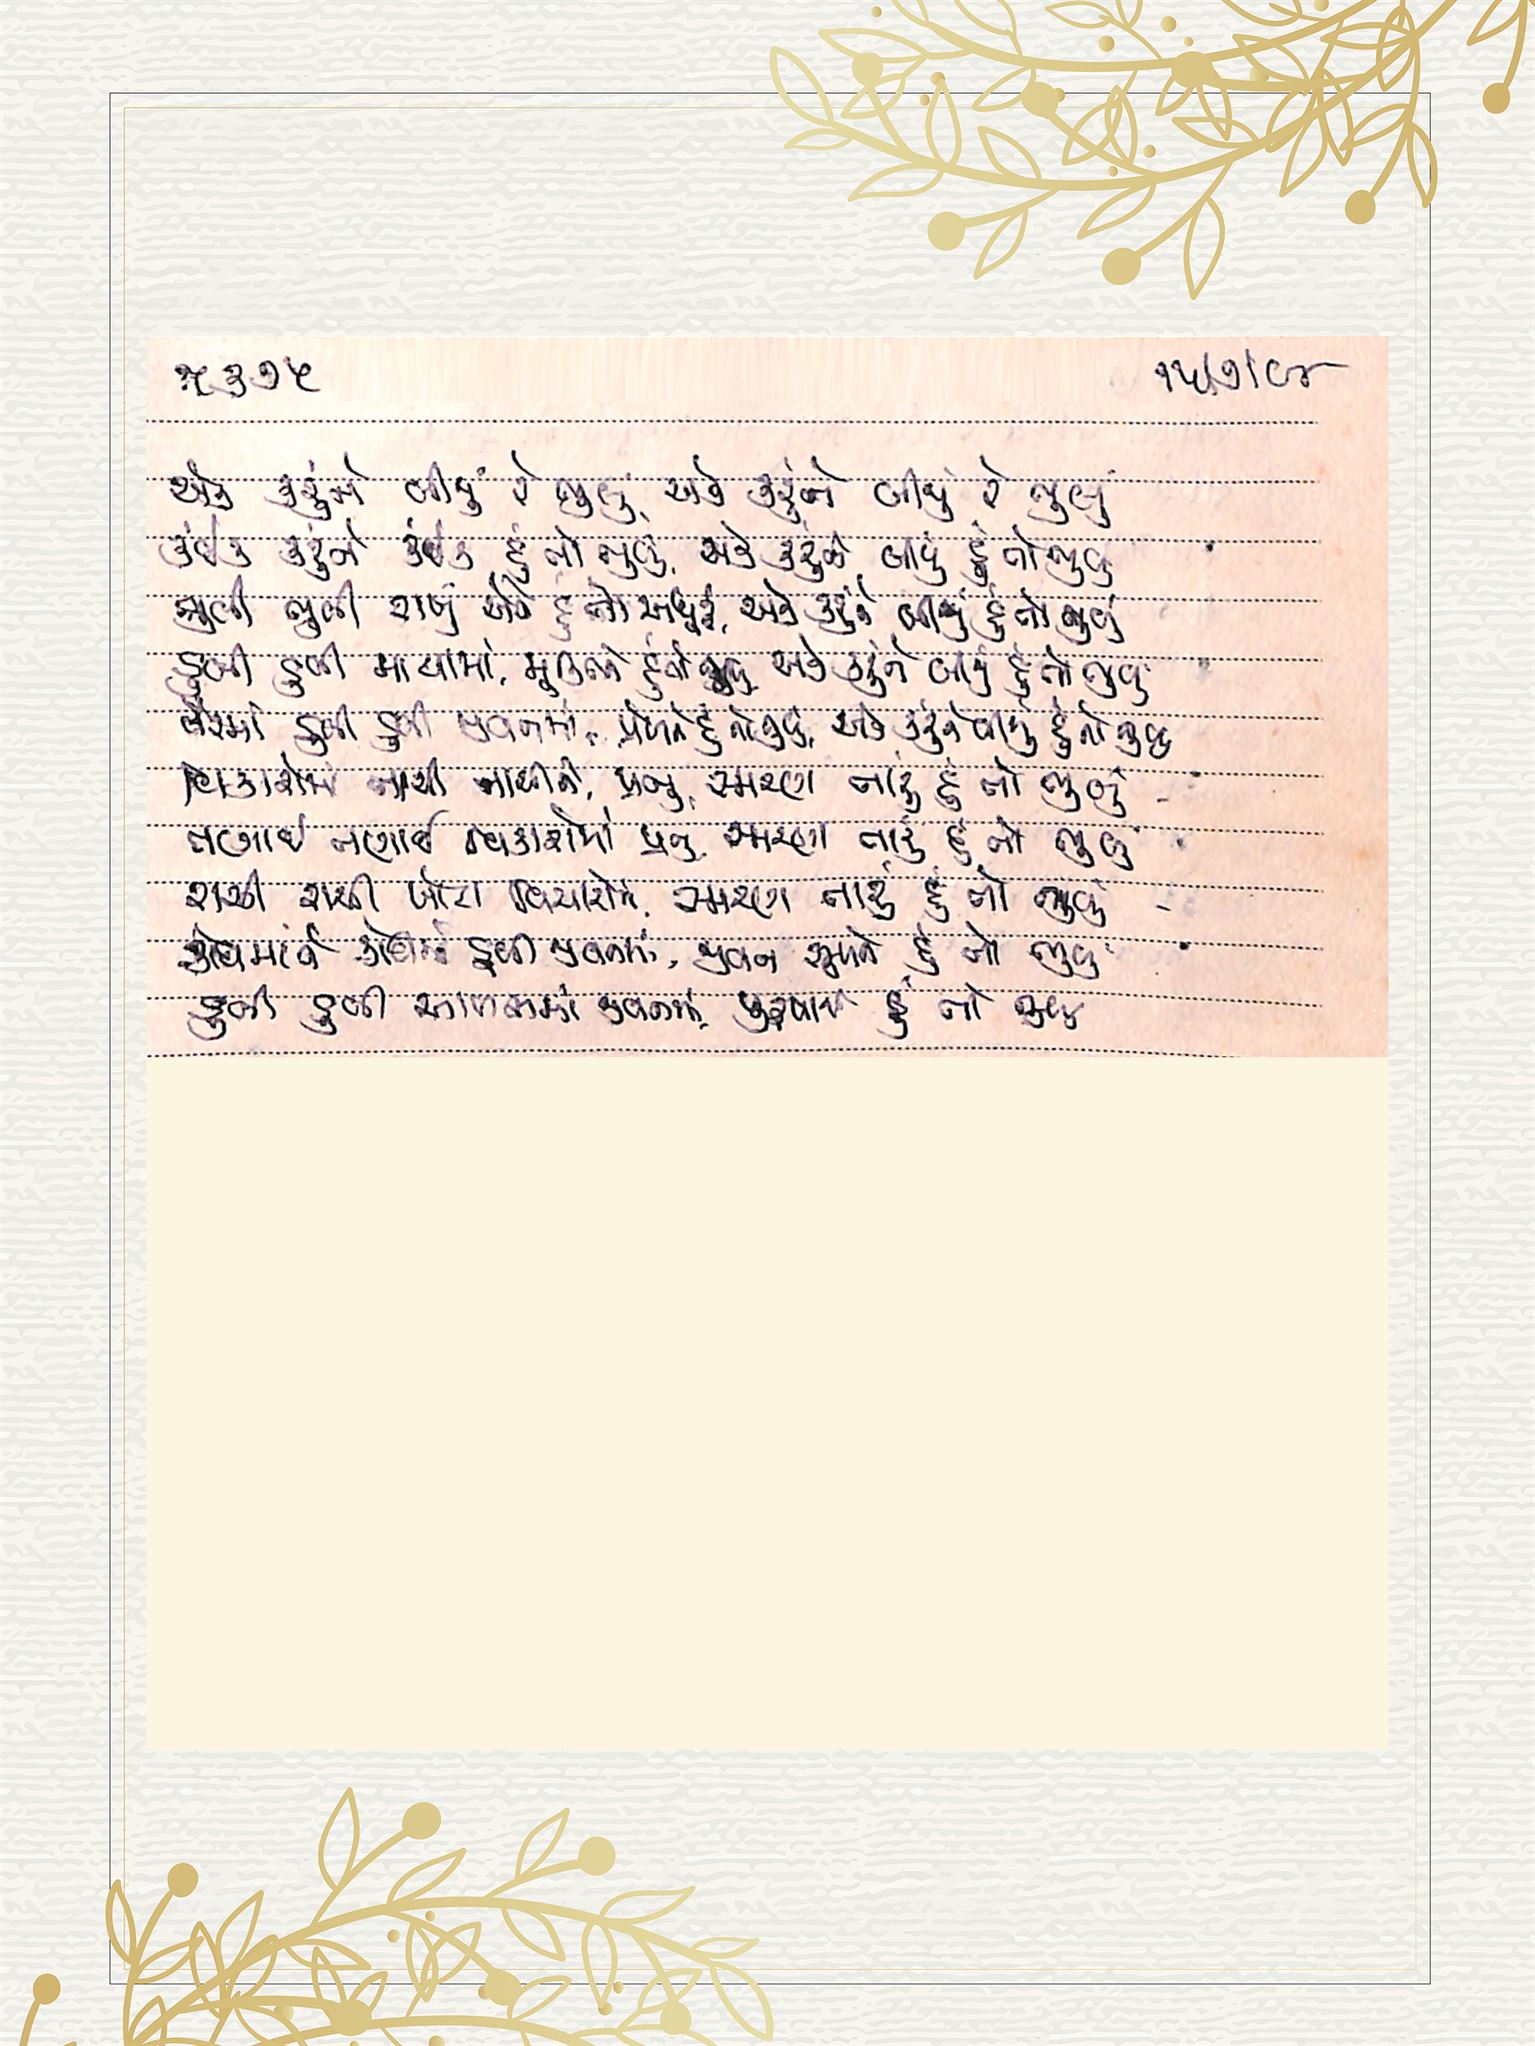 ૫૩૭૫ ૧૫/૭/૯૪
એક કરુંને બીજું રે ભુલું, એક કરુંને બીજું રે ભુલું
કંઈક કરુંને કંઈક હું તો ભુલું, એક કરુંને બીજું હું તો ભુલું
ભુલી ભુલી રાખું એવે હું તો અધૂરું, એક કરુંને બીજું હું તો ભુલું
ડુબી ડુબી માયામાં, મુક્તિને હું તો ભુલું એક કરુંને બીજું હું તો ભુલું
વેરમાં ડુબી ડુબી જીવનમાં, પ્રેમને હું તો ભુલું, એક કરુંને બીજું હું તો ભુલું
વિકારોમાં નાચી નાચીને, પ્રભુ, સ્મરણ તારું હું તો ભુલું
તણાઈ તણાઈ વિકારોમાં પ્રભુ, સ્મરણ તારું હું તો ભુલું
રાચી રાચી ખોટા વિચારોને, સ્મરણ તારું હું તો ભુલું
ક્રોધમાં ને ક્રોધમાં ડુબી જીવનમાં, જીવન હું તો ભુલું
ડુબી ડુબી આળસમાં જીવનમાં, પુરુષાર્થ હું તો ભુલું